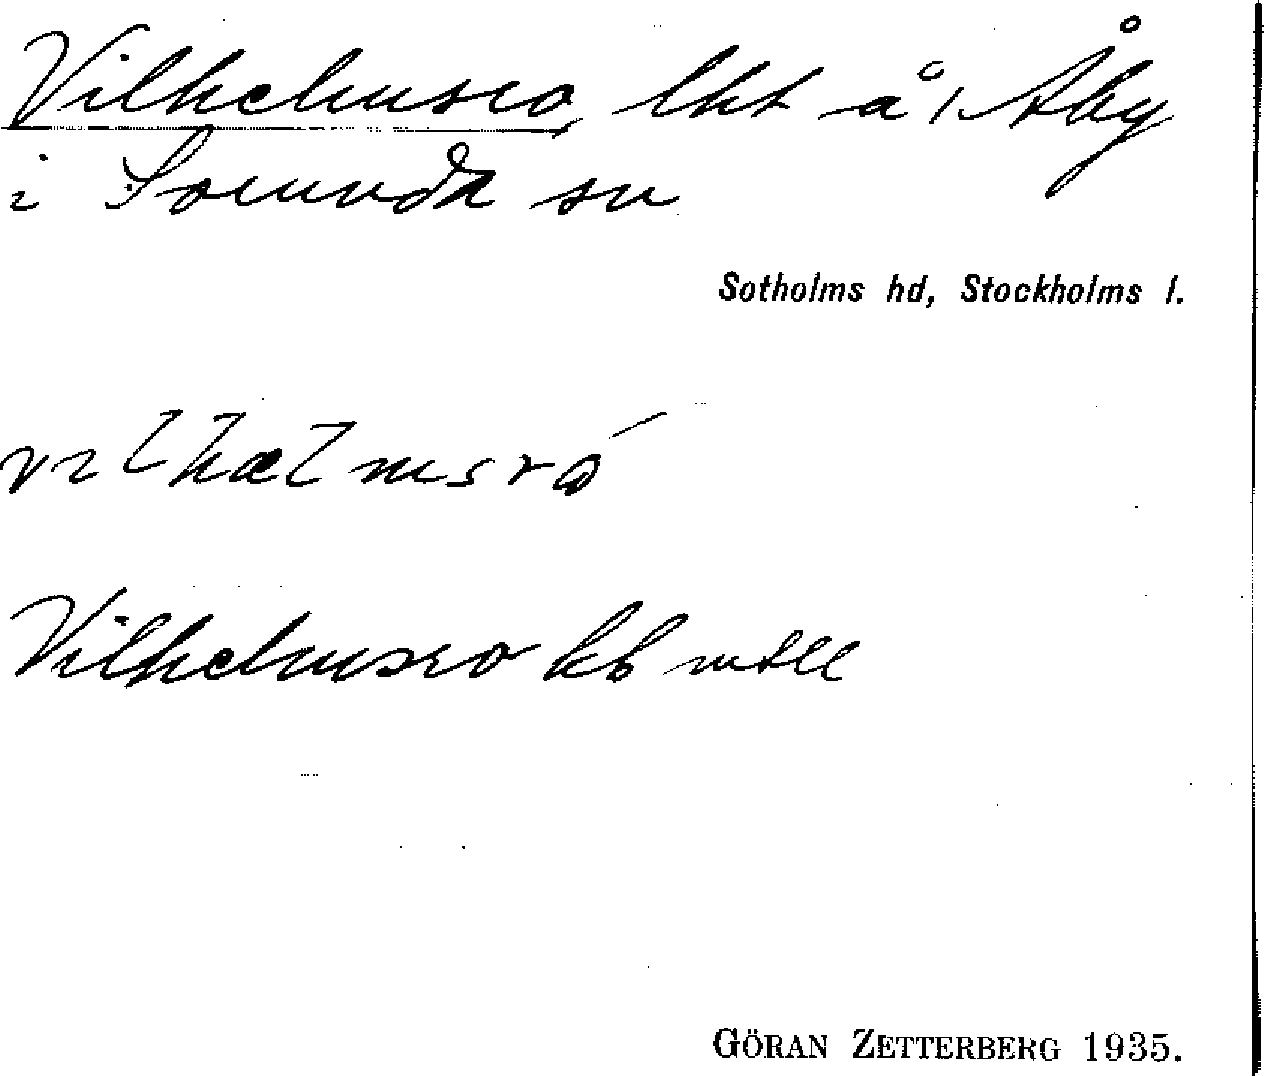 Vilhelmsro, lht å 1 Åby
i Sorunda sn
Sotholms hd, Stockholms l.
Vilhelmsro kb
GÖRAN ZETTERBERG 1935.